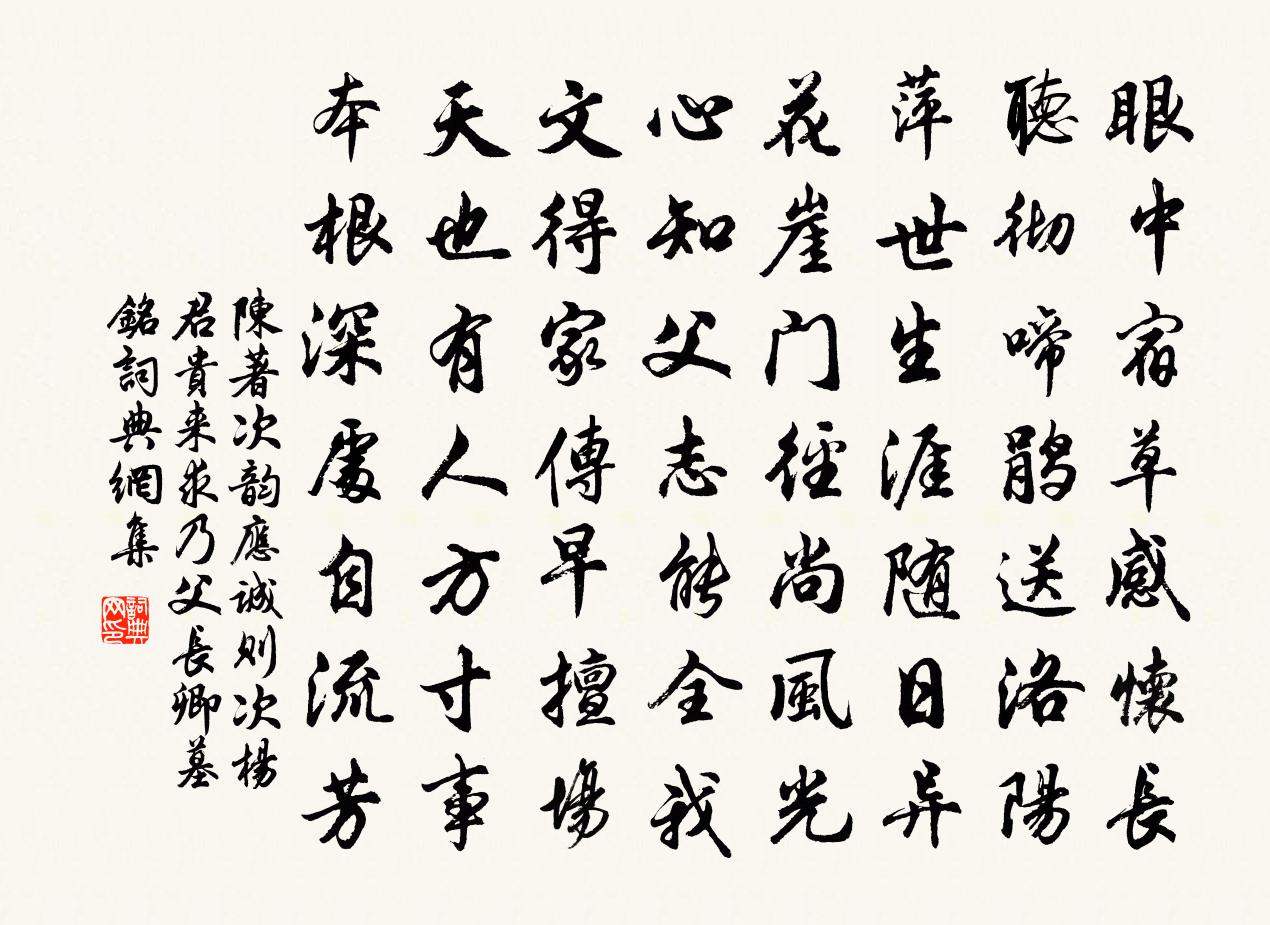 眼中宿草感懷長
聽彻啼鹃送洛陽
萍世生涯随日异
花崖门徑尚風光
心知父志能全我
文得家傳早擅場
天也有人方寸事
本根深處自流芳
陳著次韵應誠则次楊
君貴来求乃父長卿墓
銘詞典網集
詞典网印